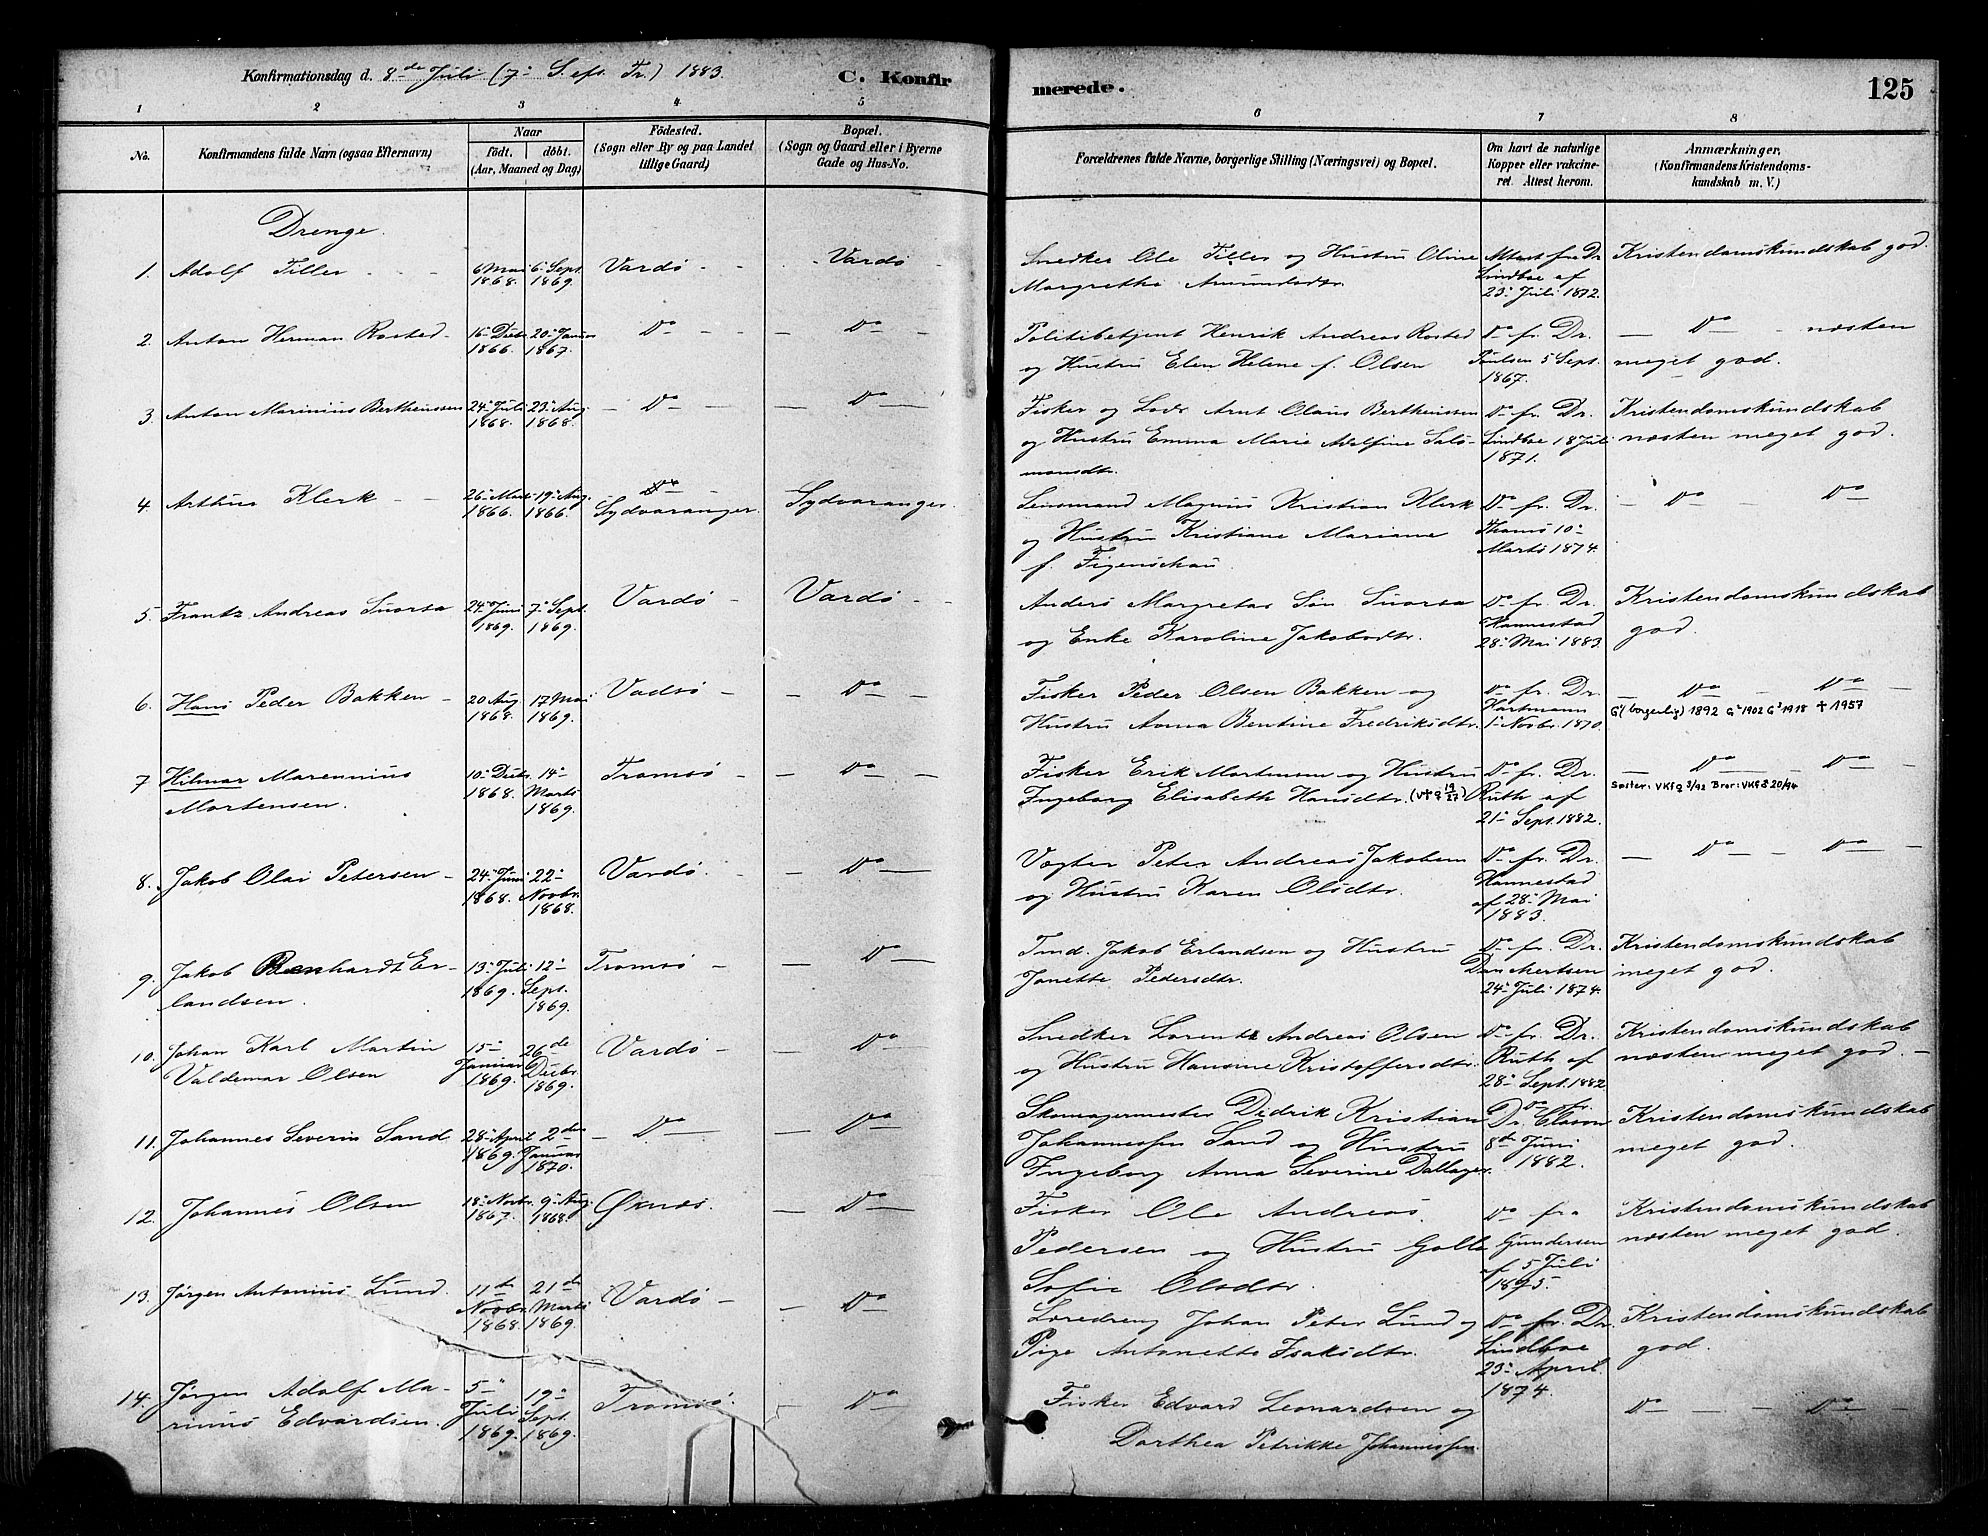 Konfirmationsdag d. 8de Juli (7de S. eft. Tr.) 1883.
C. Konfirmerede.
125
1 2 3 4 5 6 7 8
No.
Konfirmandens fulde Navn (ogsaa Efternavn)
Naar
födt. döbt.
(Aar, Maaned og Dag)
Födested.
(Sogn eller By og paa Landet
tillige Gaard)
Bopæl.
(Sogn og Gaard eller i Byerne
Gade og Hus-No.
Forældrenes fulde Navne, borgerlige Stilling (Næringsvei) og Bopæl.
Om havt de naturlige
Kopper eller vakcine-
ret. Attest herom.
Anmærkninger,
(Konfirmandens Kristendoms-
kundskab m. V.)
Drenge.
1. Adolf Tiller 6 Mai 1868. 6 Sept. 1869. Vardö Vardö
Snedker Ole Tiller og Hustru Oline
Margrethe Amundsdtr.
Attest fra Dr.
Lindboe af
23 Juli 1872.
Kristendomskundskab god.
2. Anton Herman Rosted 16 Decbr. 1866. 20 Januar 1867. Do Do
Politibetjent Henrik Andreas Rosted
og Hustru Elen Helene f. Olsen
Do fr. Dr.
Poulsen 5 Sept.
1867.
Do næsten
meget god.
3. Anton Marinius Bertheussen 24 Juli 1868. 23 Aug. 1868. Do Do
Fisker og Lods Arnt Olaus Bertheussen
og Hustru Emma Marie Adelfine Salo-
monsdtr.
Do fr. Dr.
Lindboe 18 Juli
1871.
Kristendomskundskab
næsten meget god.
4. Arthur Klerk 26 Marts 1866. 19 Aug. 1866. Do
Sydvaranger. Sydvaranger.
Lensmand Magnus Kristian Klerk
og Hustru Kristiane Mariane
f. Figenschau.
Do fr. Dr.
Thams 10
Marts 1874.
Do Do
5. Frantz Andreas Suorsa 24 Juni 1869. 7 Sept. 1869. Vardö Vardö
Anders Margretas Søn Suorsa
og Enke Karoline Jakobsdtr.
Do fr. Dr.
Hannestad
28 Mai 1883.
Kristendomskundskab
god.
6. Hans Peder Bakken 20 Aug. 1868. 17 Mai 1869. Vadsö Do
Fisker Peder Olsen Bakken og
Hustru Anna Bentine Fredriksdtr.
Do fr. Dr.
Hartmann
1 Novbr. 1870.
Do Do
G1 (borgerlig) 1892 G2 1902 G3 1918 † 1957
7 Hilmar Marennius
Mortensen. 10 Decbr. 1868. 14 Marts 1869. Tromsö Do
Fisker Erik Mortensen og Hustru
Ingeborg Elisabeth Hansdtr. (V†♀ 19/27)
Do fr. Dr.
Ruth af
21 Sept. 1882.
Do Do
Søster: VKf♀ 3/92 Bror: VKf♂ 20/94
8. Jakob Olai Petersen 24 Juni 1868. 22 Novbr. 1868. Vardö Do
Vogter Peter Andreas Jakobsen
og Hustru Karen Olsdtr.
Do fr. Dr.
Hannestad
af 28 Mai
1883.
Do Do
9. Jakob Renhardt Er-
landsen. 13 Juli 1869. 12 Sept. 1869. Tromsö Do
Tmd. Jakob Erlandsen og Hustru
Janette Pedersdtr.
Do fr. Dr.
Danchertsen
24 Juli 1874.
Kristendomskundskab
meget god.
10. Johan Karl Martin
Valdemar Olsen 15 Januar 1869. 26de Decbr. 1869. Vardö Do
Snedker Lorentz Andreas Olsen
og Hustru Hansine Kristoffersdtr.
Do fr. Dr.
Ruth af
28 Sept. 1882
Kristendomskundskab
næsten meget god.
11. Johannes Severin Sand 28 April 1869. 2den Januar 1870. Do Do
Skomagermester Didrik Kristian
Johannessen Sand og Hustru
Ingeborg Anna Severine Dallager.
Do fr.
Dr. Clason
8de Juni
1882.
Kristendomskundskab
meget god.
12. Johannes Olsen 18 Novbr. 1867. 9 Aug. 1868. Øknes. Do
Fisker Ole Andreas
Pedersen og Hustru
Sofie Olsdtr.
Do fra
Gundersen
af 5 Juli
1875.
Kristendomskundskab
næsten meget god.
13. Jørgen Antonius Lund. 11te Novbr. 1868. 21de Marts 1869. Vardö Do
Løsedreng Johan Peter Lund og
Pige Antonette Isaksdtr.
Do fr. Dr.
Lindboe
23 April
1874.
Kristendomskundskab
god.
14. Jørgen Adolf Ma-
rinus Edvardsen. 5 Juli 1869. 19 Sept. 1869. Tromsö. Do
Fisker Edvard Leonardsen og
Dorthea Petrikke Johannessen
Do Do